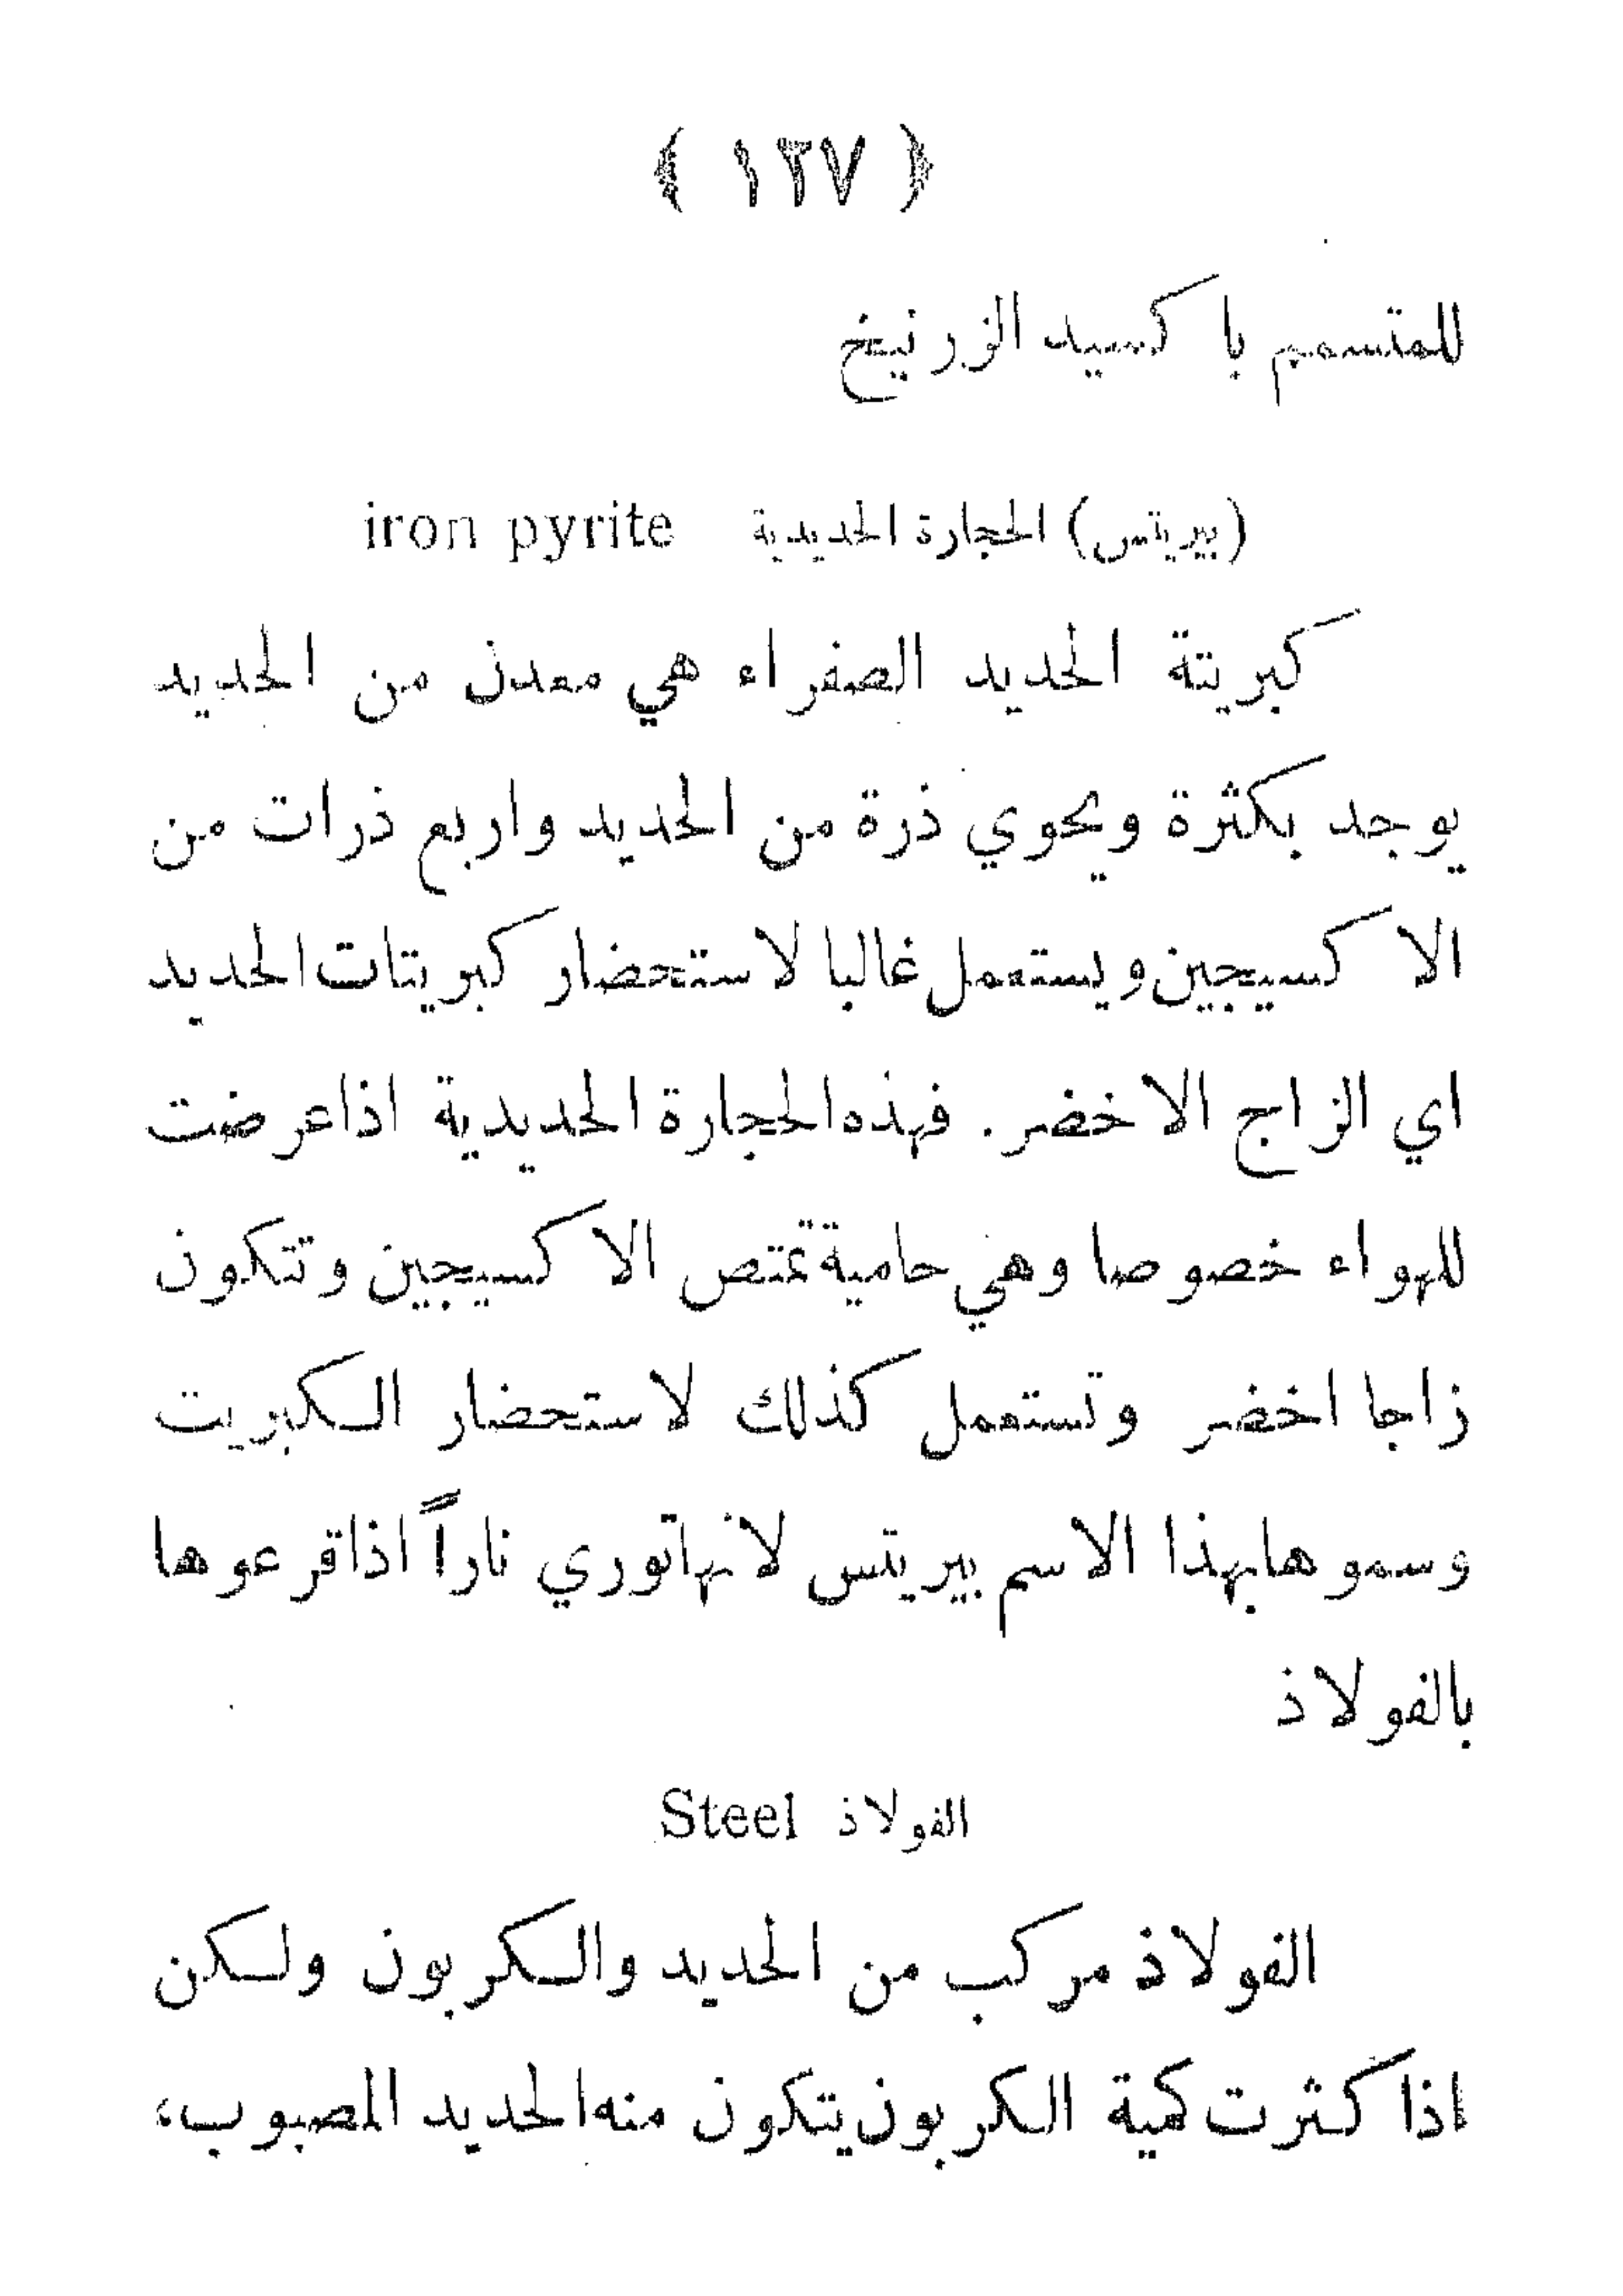 ﴿ ١٢٧ ﴾
للمتسمم باكسيد الزرنيخ
(بيريتس) الحجارة الحديدية iron pyrite
كبريتة الحديد الصفراء هي معدن من الحديد
يوجد بكثرة ويحوي ذرة من الحديد واربع ذرات من
الاكسيجين ويستعمل غالبا لاستحضار كبريتات الحديد
اي الزاج الاخضر. فهذه الحجارة الحديدية اذا عرضت
للهواء خصوصا وهي حامية تمتص الاكسيجين وتتكون
زاجا اخضر وتستعمل كذلك لاستحضار الكبريت
وسموها بهذا الاسم بيريتس لانها توري ناراً اذا قرعوها
بالفولاذ
الفولاذ Steel
الفولاذ مركب من الحديد والكربون ولكن
اذا كثرت كمية الكربون يتكون منه الحديد المصبوب،